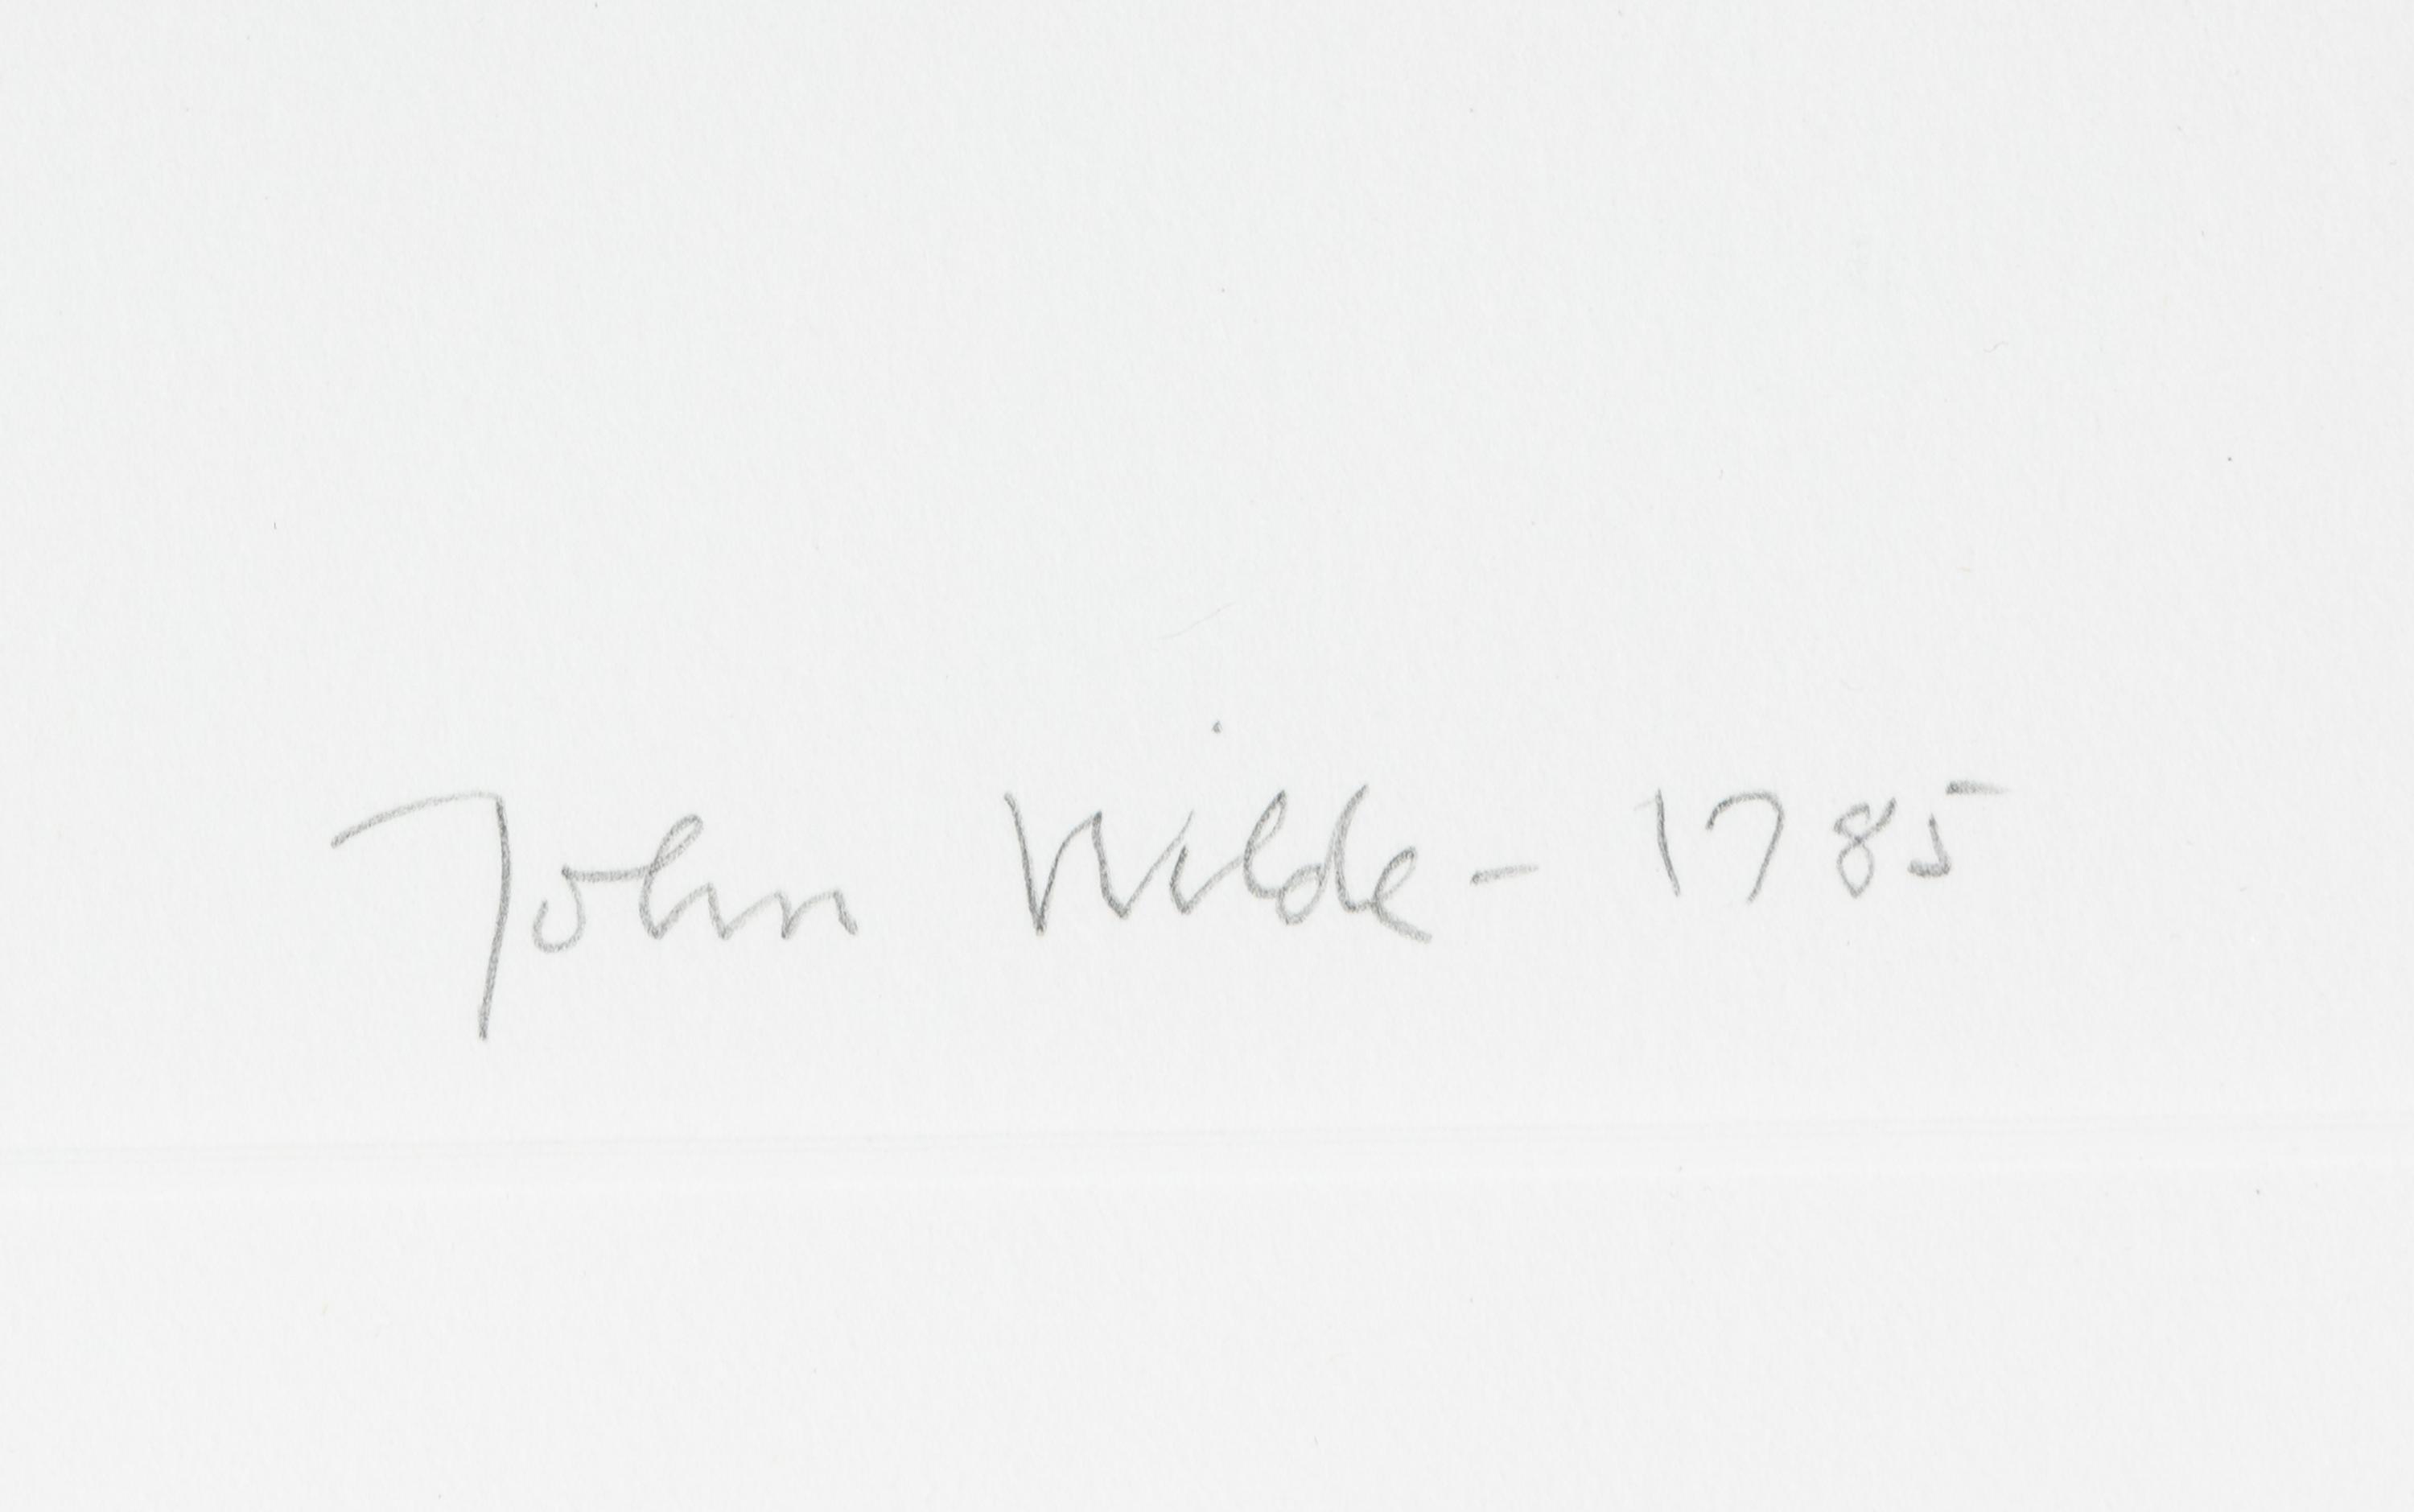 John Wilde – 1785